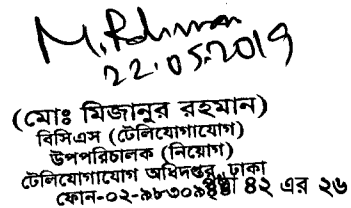 M. Rahman
22.05.2019
(মোঃ মিজানুর রহমান)
বিসিএস (টেলিযোগাযোগ)
উপপরিচালক (নিয়োগ)
টেলিযোগাযোগ অধিদপ্তর, ঢাকা
ফোন-০২-৯৮৩০৯
পৃষ্ঠা ৪২ এর ২৬